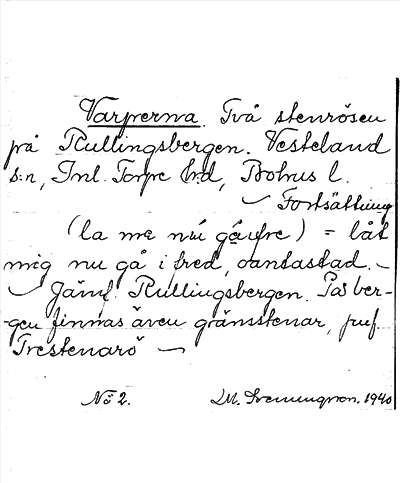 Varperna. Två stenrösen
på Rullingsbergen. Vesteland
s:n, Inl. Torpe h:d, Bohus l.
Fortsättning
(la me nú gå ufre) = låt
mig nu gå i fred, oantastad. –
– Jämf. Rullingsbergen. På ber-
gen finnas även gränsstenar, jmf.
Trestenarö –
No 2. LM. Svenungsson. 1940